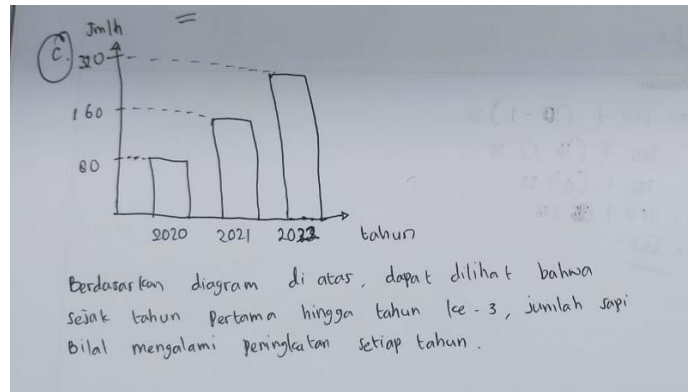 Jmlh
c.
320
160
80
2020 2021 2022 tahun
Berdasarkan diagram di atas, dapat dilihat bahwa
sejak tahun pertama hingga tahun ke-3, jumlah sapi
Bilal mengalami peningkatan setiap tahun.